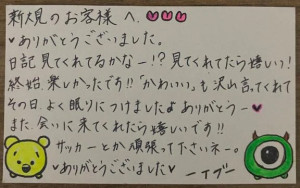 新規のお客様へ♥♥♥
♥ありがとうございました。
日記見てくれてるかなー!?見てくれてたら嬉しい!
終始、楽しかったです!!「かわいい」も沢山言ってくれて
その日、よく眠りにつけましたよありがとうー♥
また、会いに来てくれたら嬉しいです!!
サッカーとか頑張って下さいネー。
♥ありがとうございました♥
ーイブー